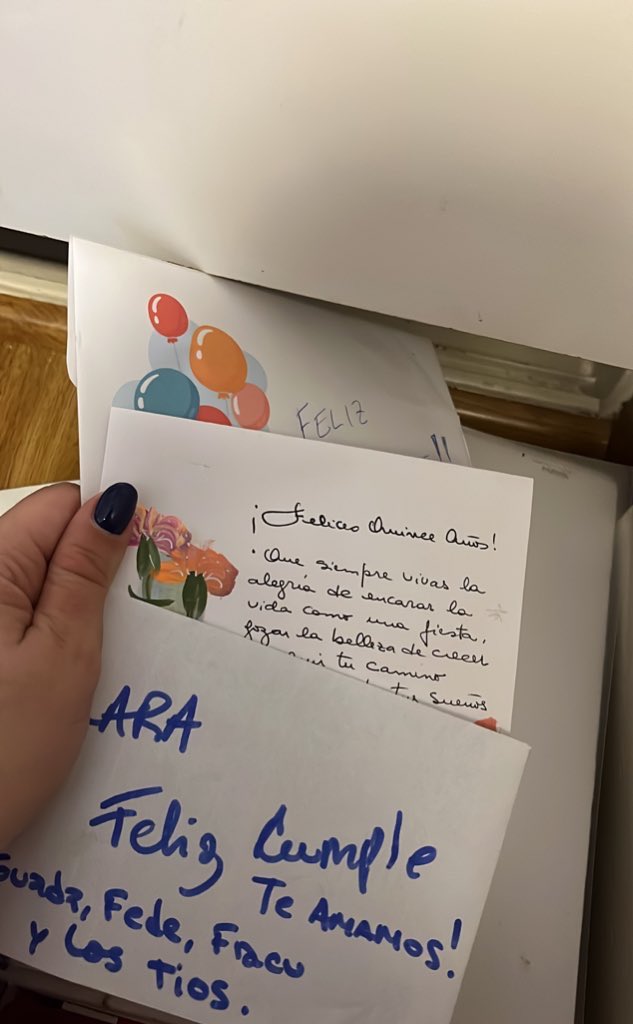 FELIZ
!!
¡Felices Quince Años!
Que siempre vivas la
alegría de encarar la
vida como una fiesta,
gozar la belleza de crecer
tu camino
tus sueños
LARA
Feliz Cumple
TE AMAMOS!
Guada, Fede, Fracu
Y Los Tios.